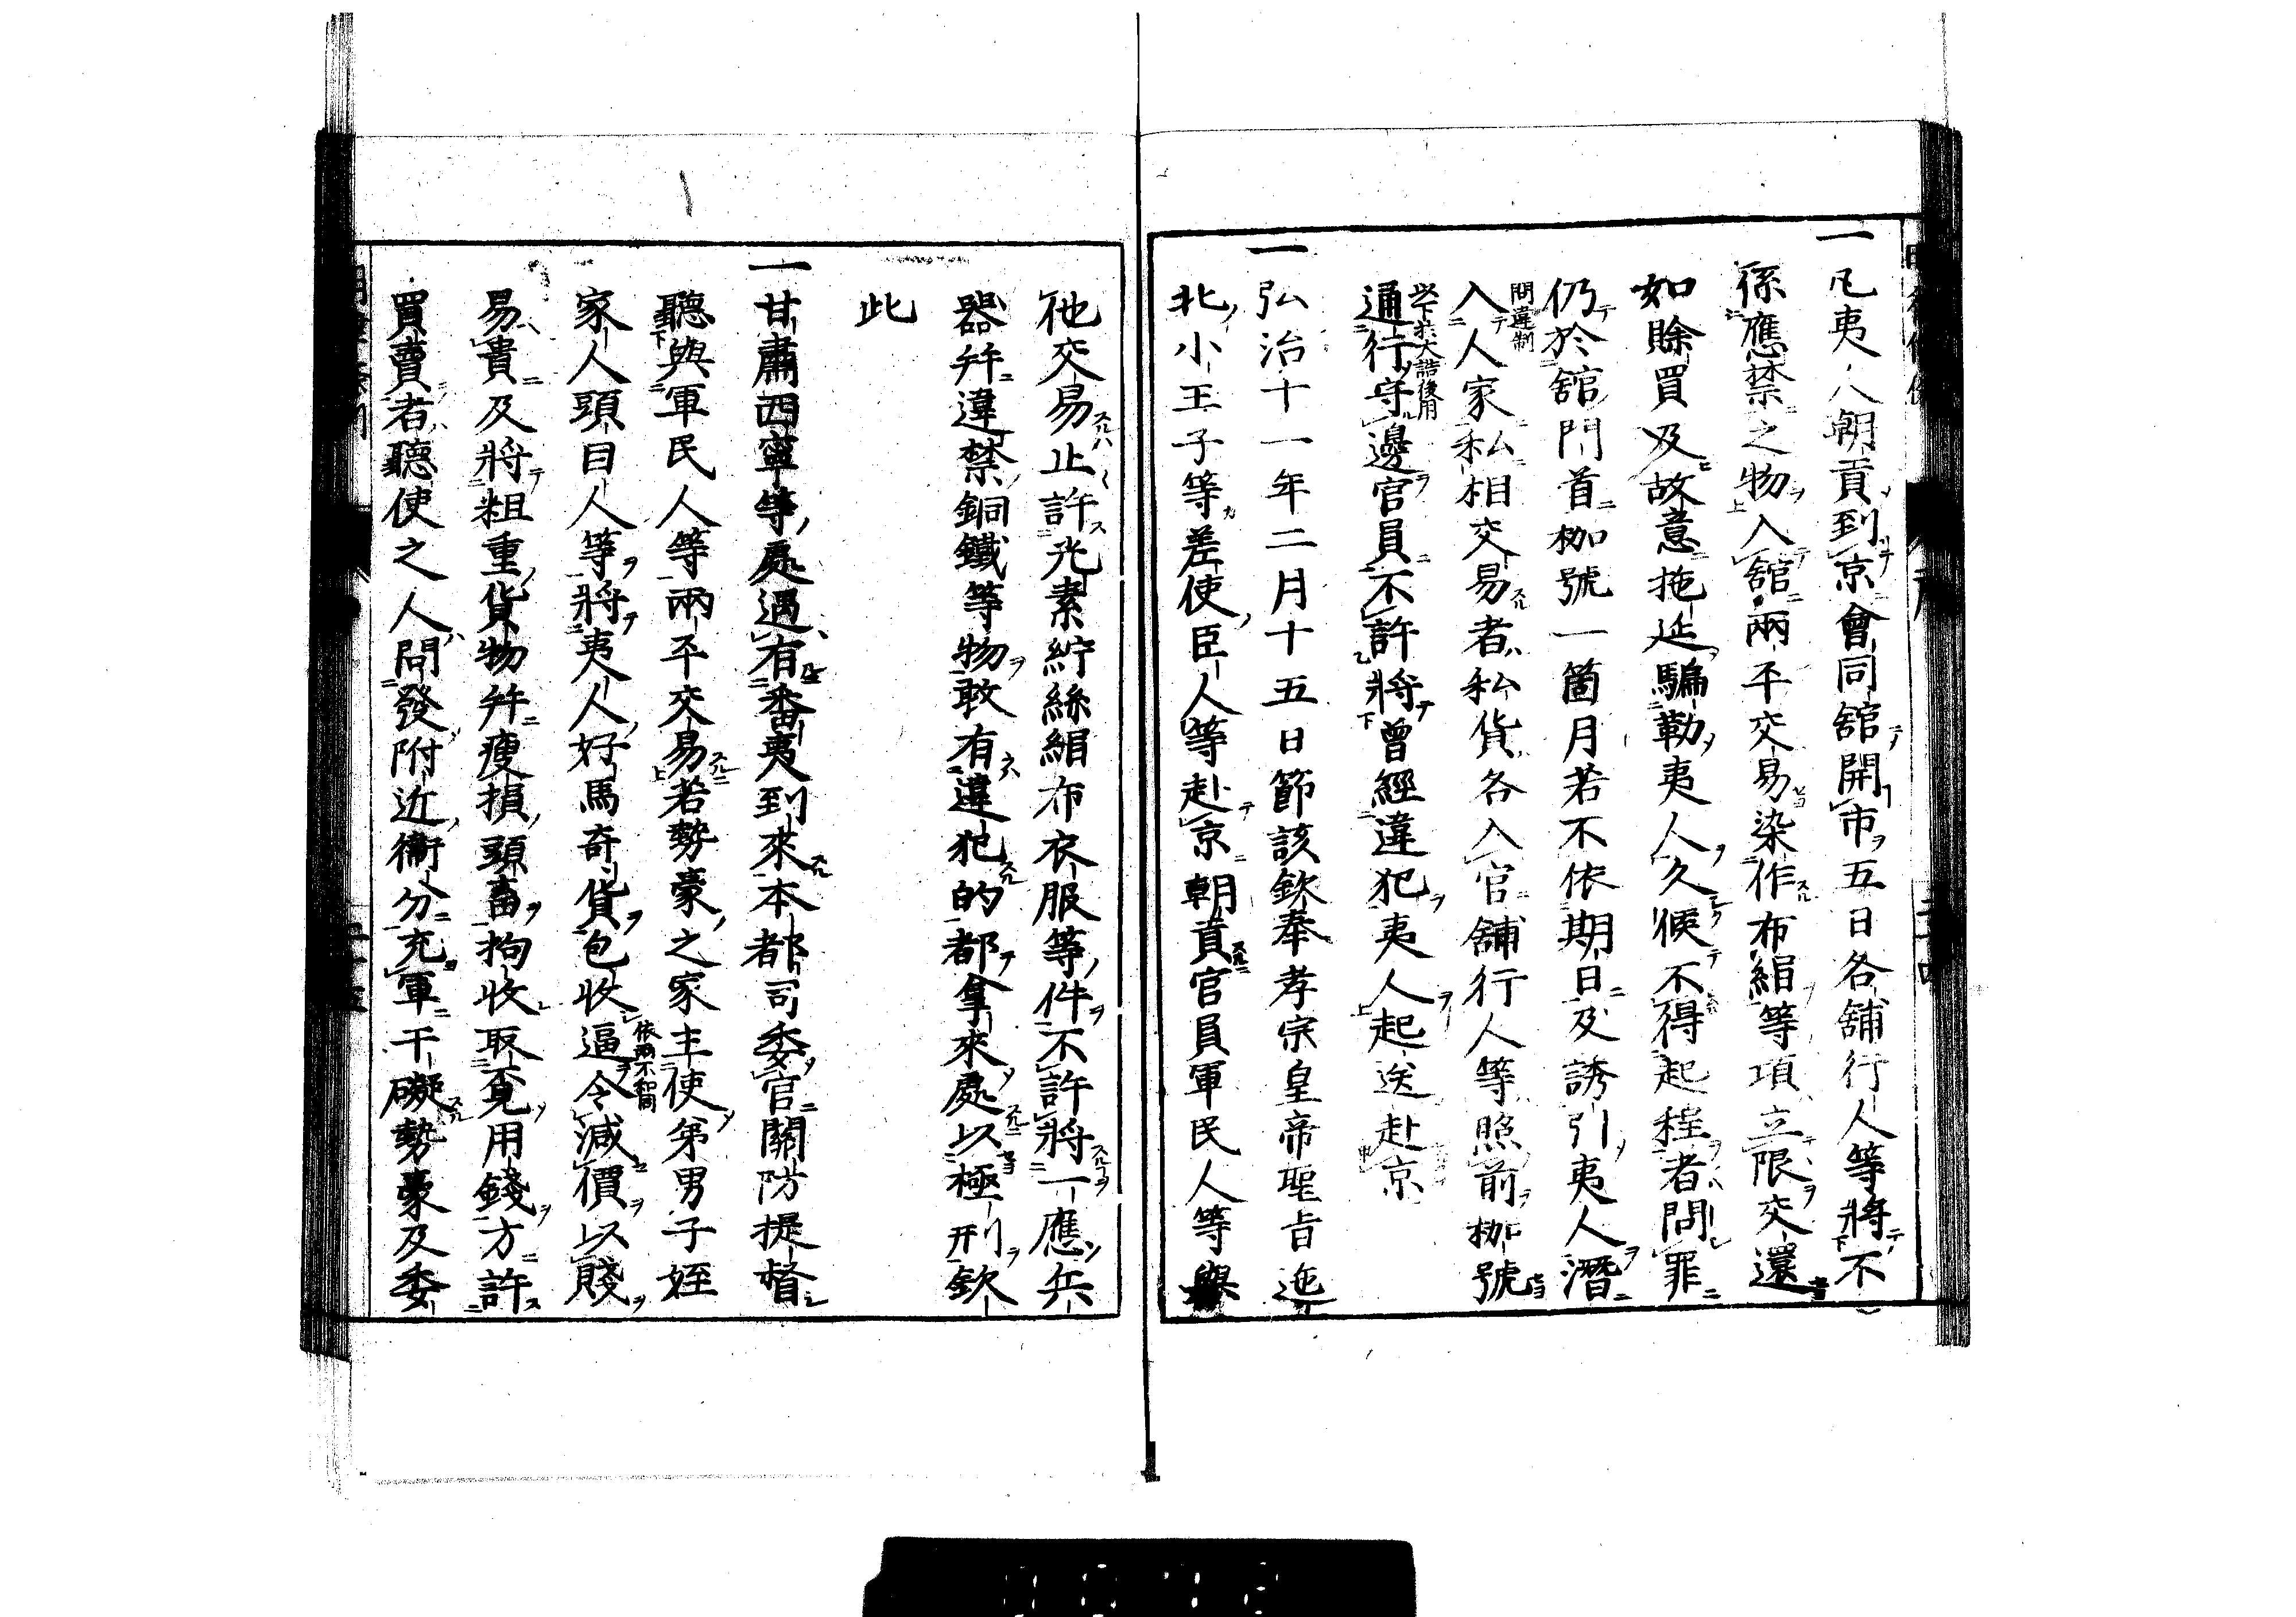 一凡夷人朝貢到京會同舘開市五日各舖行人等將不
係應禁之物入舘兩平交易染作布絹等項立限交還
如賒買及故意拖延騙勒夷人久候不得起程者問罪
仍於舘門首枷號一箇月若不依期日及誘引夷人潛
問違制
入人家私相交易者私貨各入官舖行人等照前枷號
通行守邊官員不許將曾經違犯夷人起送赴京
一弘治十一年二月十五日節該欽奉孝宗皇帝聖旨迤
北小王子等差使臣人等赴京朝貢官員軍民人等與
他交易止許光素紵絲絹布衣服等件不許將一應兵
器幷違禁銅鐵等物敢有違犯的都拿來處以極刑欽
此
一甘肅西寧等處遇有番夷到來本都司委官關防提督
聽與軍民人等兩平交易若勢豪之家主使弟男子姪
家人頭目人等將夷人好馬奇貨包收逼令減價以賤
易貴及將粗重貨物幷瘦損頭畜拘收取覓用錢方許
買賣者聽使之人問發附近衞分充軍干礙勢豪及委